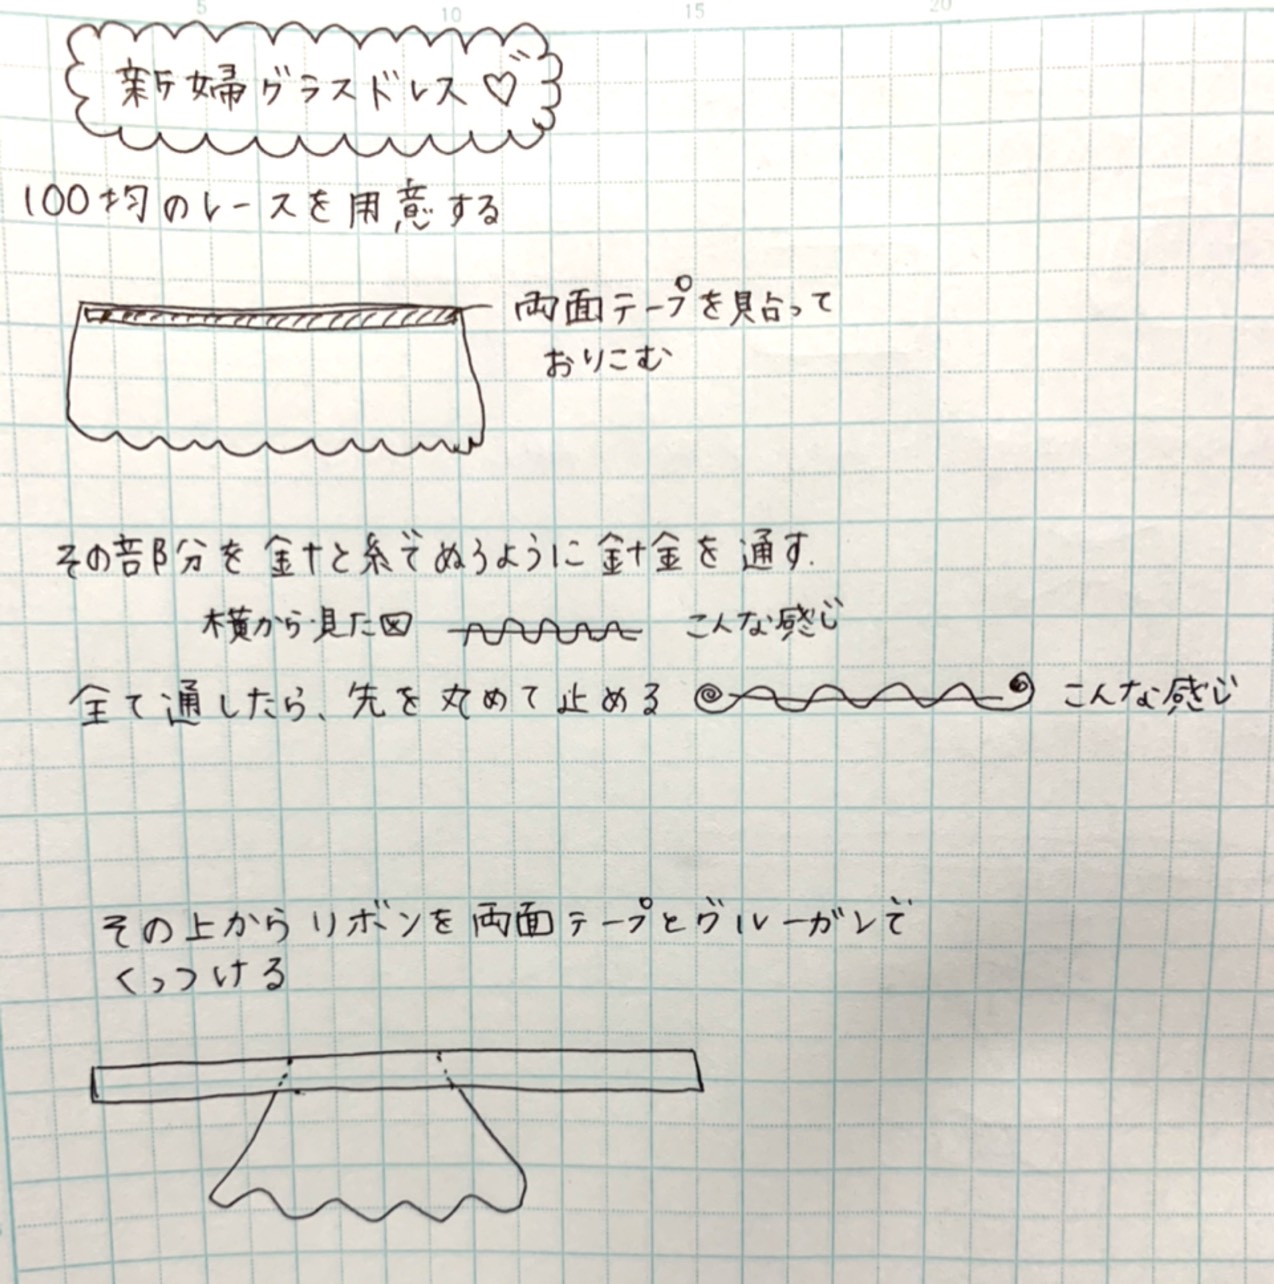 5 10 15 20
新婦グラスドレス♡
100均のレースを用意する
両面テープを貼って
おりこむ
その部分を針と糸でぬうように針金を通す.
横から見た図 こんな感じ
全て通したら、先を丸めて止める こんな感じ
その上からリボンを両面テープとグルーガンで
くっつける